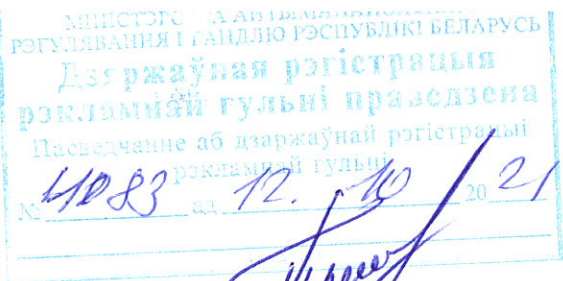 РЭГУЛЯВАННЯ І ГАНДЛЮ РЭСПУБЛІКІ БЕЛАРУСЬ
Дзяржаўная рэгістрацыя
рэкламнай гульні праведзена
Пасведчанне аб дзяржаўнай рэгістрацыі
рэкламнай гульні
№ 4083 ад 12. 10 2021